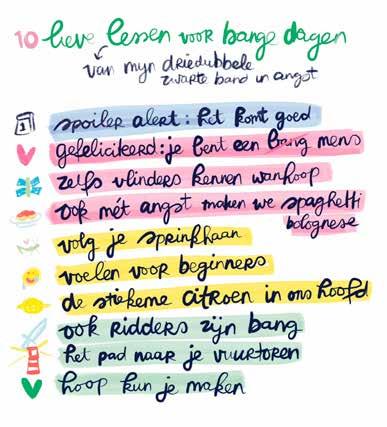 10 lieve lessen voor bange dagen
van mijn driedubbele
zwarte band in angst
1
spoiler alert: het komt goed
gefeliciteerd: je bent een bang mens
zelfs vlinders kennen wanhoop
ook mét angst maken we spaghetti
bolognese
volg je sprinkhaan
voelen voor beginners
de stiekeme citroen in ons hoofd
ook ridders zijn bang
het pad naar je vuurtoren
hoop kun je maken